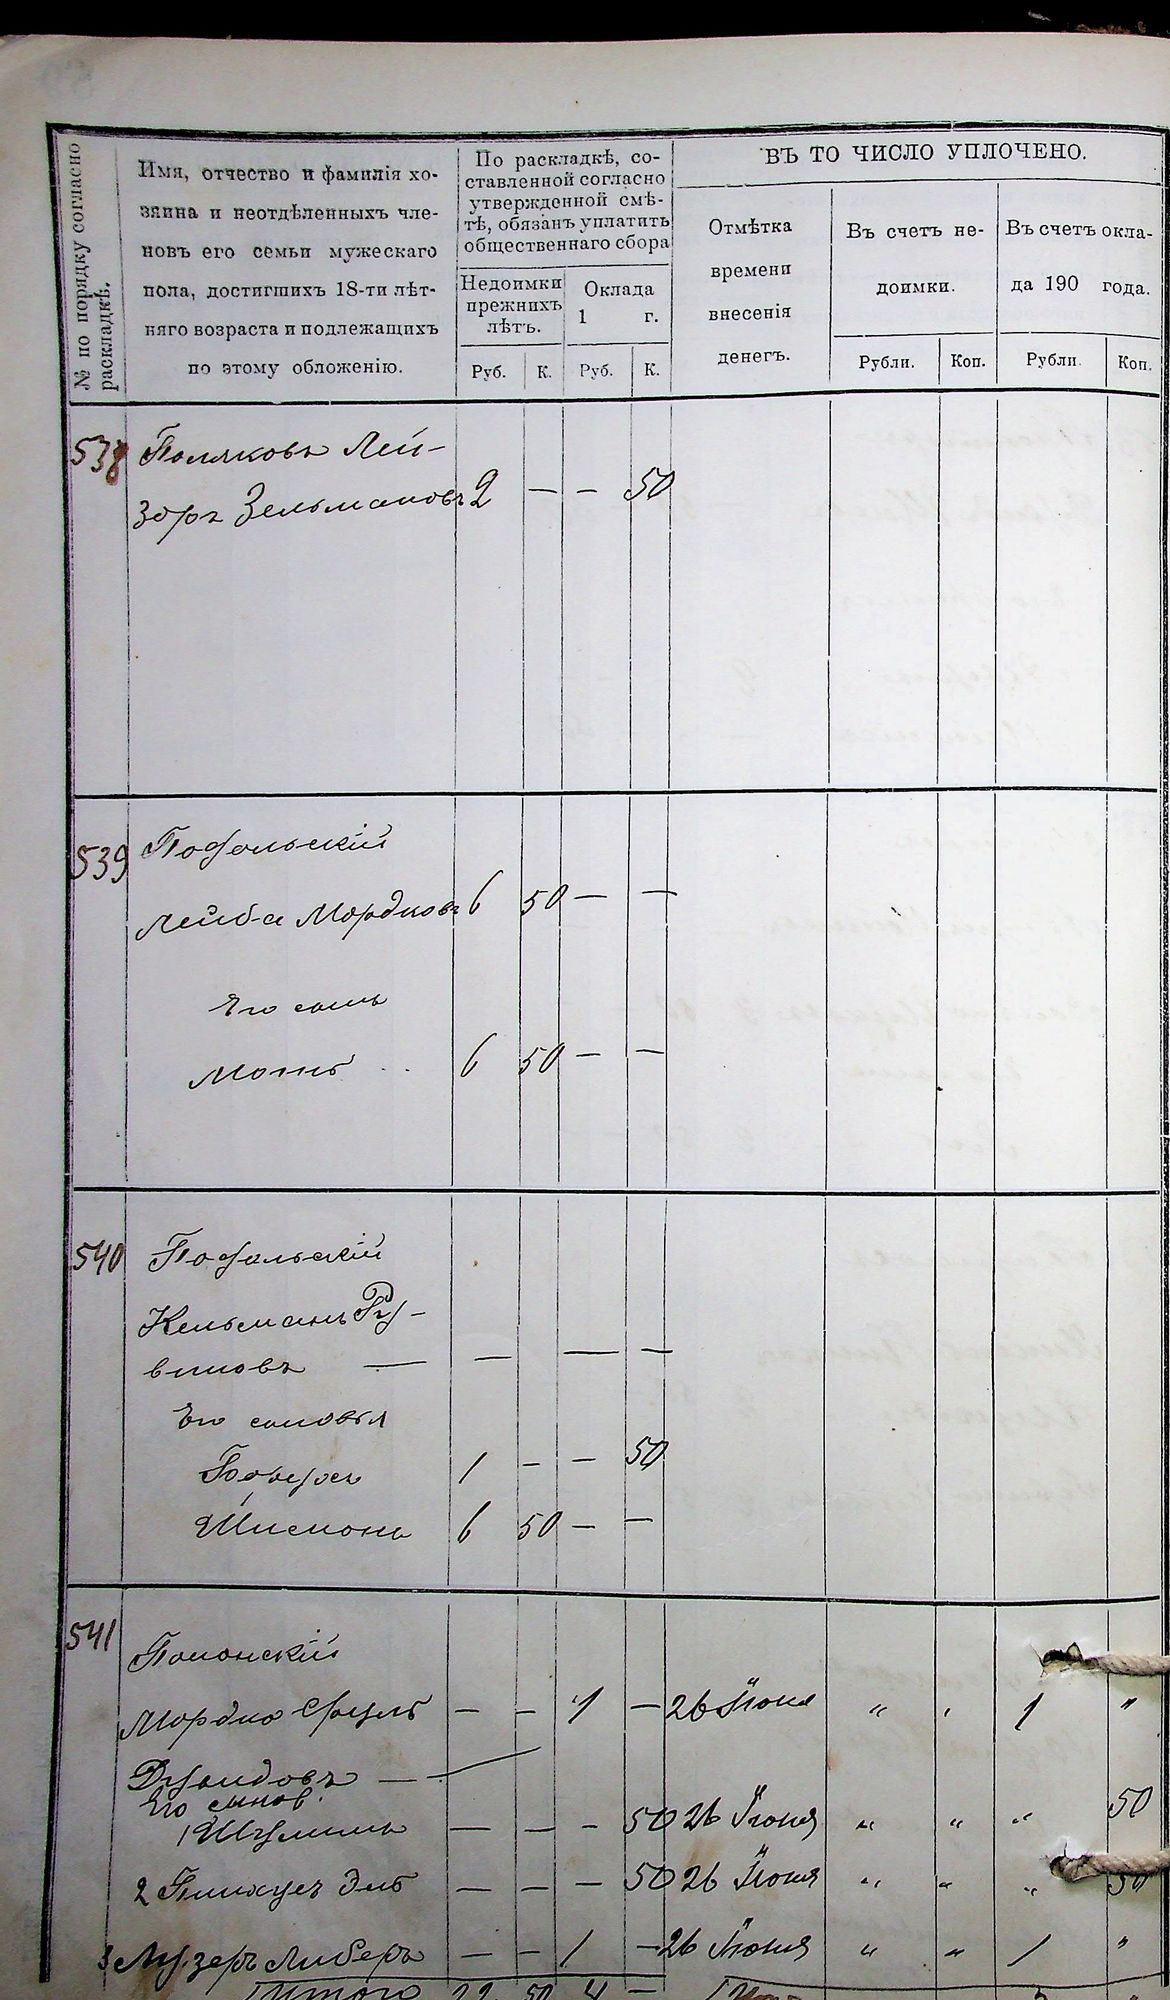 № по порядку согласно
раскладкѣ.
Имя, отчество и фамилія хо-
зяина и неотдѣленныхъ чле-
новъ его семьи мужескаго
пола, достигшихъ 18-ти лѣт-
няго возраста и подлежащихъ
по этому обложенію.
По раскладкѣ, со-
ставленной согласно
утвержденной смѣ-
тѣ, обязанъ уплатить
общественнаго сбора
Недоимки
прежнихъ
лѣтъ.
Оклада
1 г.
Руб. К. Руб. К.
ВЪ ТО ЧИСЛО УПЛОЧЕНО.
Отмѣтка
времени
внесенія
денегъ.
Въ счетъ не-
доимки.
Въ счетъ окла-
да 190 года.
Рубли. Коп. Рубли. Коп.
538 Поляковъ Лей-
зоръ Зельмановъ 2 — — 50
539 Подольскій
Лейба Мордковъ 6 50 — —
Его сынъ
Мотъ 6 50 — —
540 Подольскій
Кельманъ Ру-
виновъ — — — —
Его сыновья
1 — — 50
Шлемонъ 6 50 — —
541 Полонскій
Мордко Сруль — — 1 — 26 Іюня " " 1 "
Давидовъ —
Его сынов.
1 Шулимъ — — — 50 26 Іюня " " " 50
2 Пинхусъ Эль — — — 50 26 Іюня " " " 50
3 Лузеръ Либеръ — — 1 — 26 Іюня " " 1 "
Итого 22 50 4 —